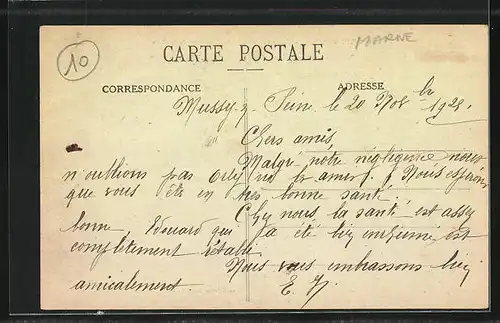 10
MARNE
CARTE POSTALE
CORRESPONDANCE
ADRESSE
Mussy s. Seine le 20 Nov bre 1925.
Chers amis,
Malgré notre négligence nous
n'oublions pas Nous espérons
que vous êtes en très bonne santé.
Chez nous la santé est assez
bonne, Edouard qui a été bien enrhumé est
complètement rétabli
Nous vous embrassons bien
amicalement.